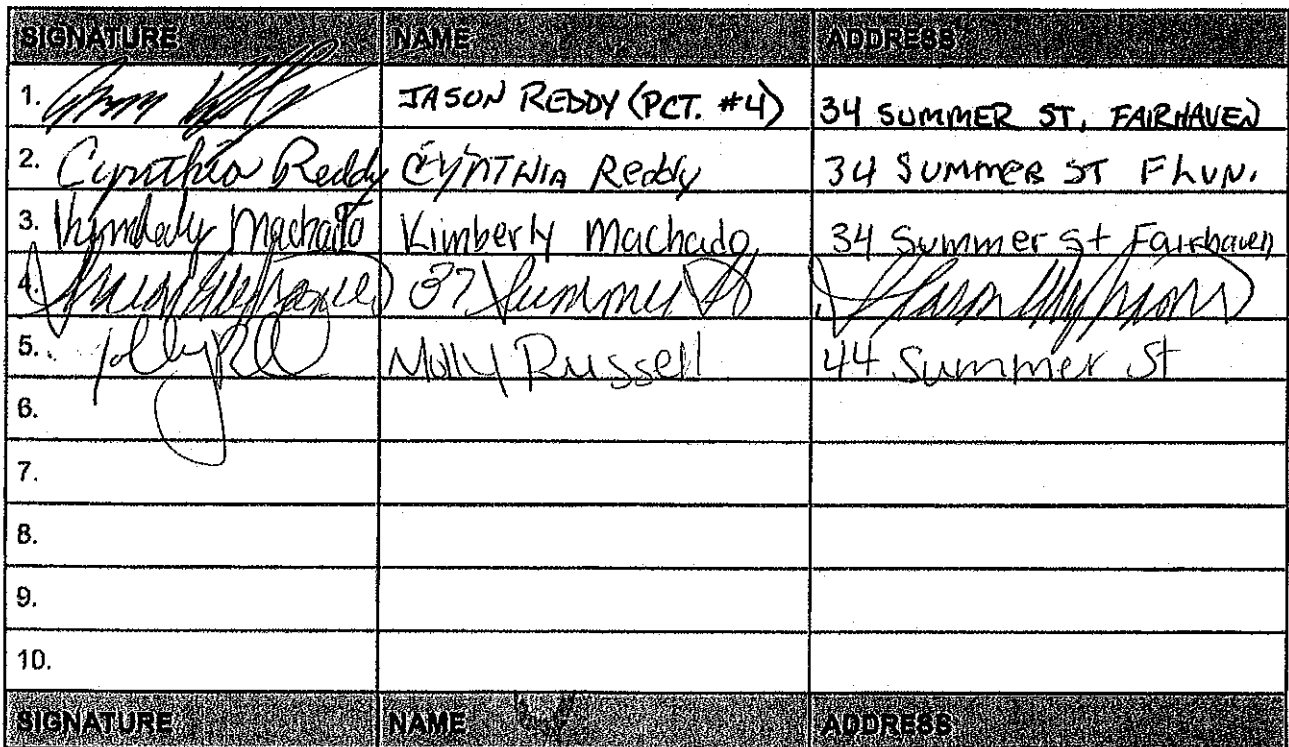 SIGNATURE NAME ADDRESS
1. JASON REDDY (PCT. #4) 34 SUMMER ST, FAIRHAVEN
2. Cynthia Reddy CYNTHIA Reddy 34 SUMMER ST FHVN.
3. Kimberly Machado Kimberly Machado 34 Summer St Fairhaven
4. 37 Summer St
5. Molly Russell 44 Summer St
6.
7.
8.
9.
10.
SIGNATURE NAME ADDRESS